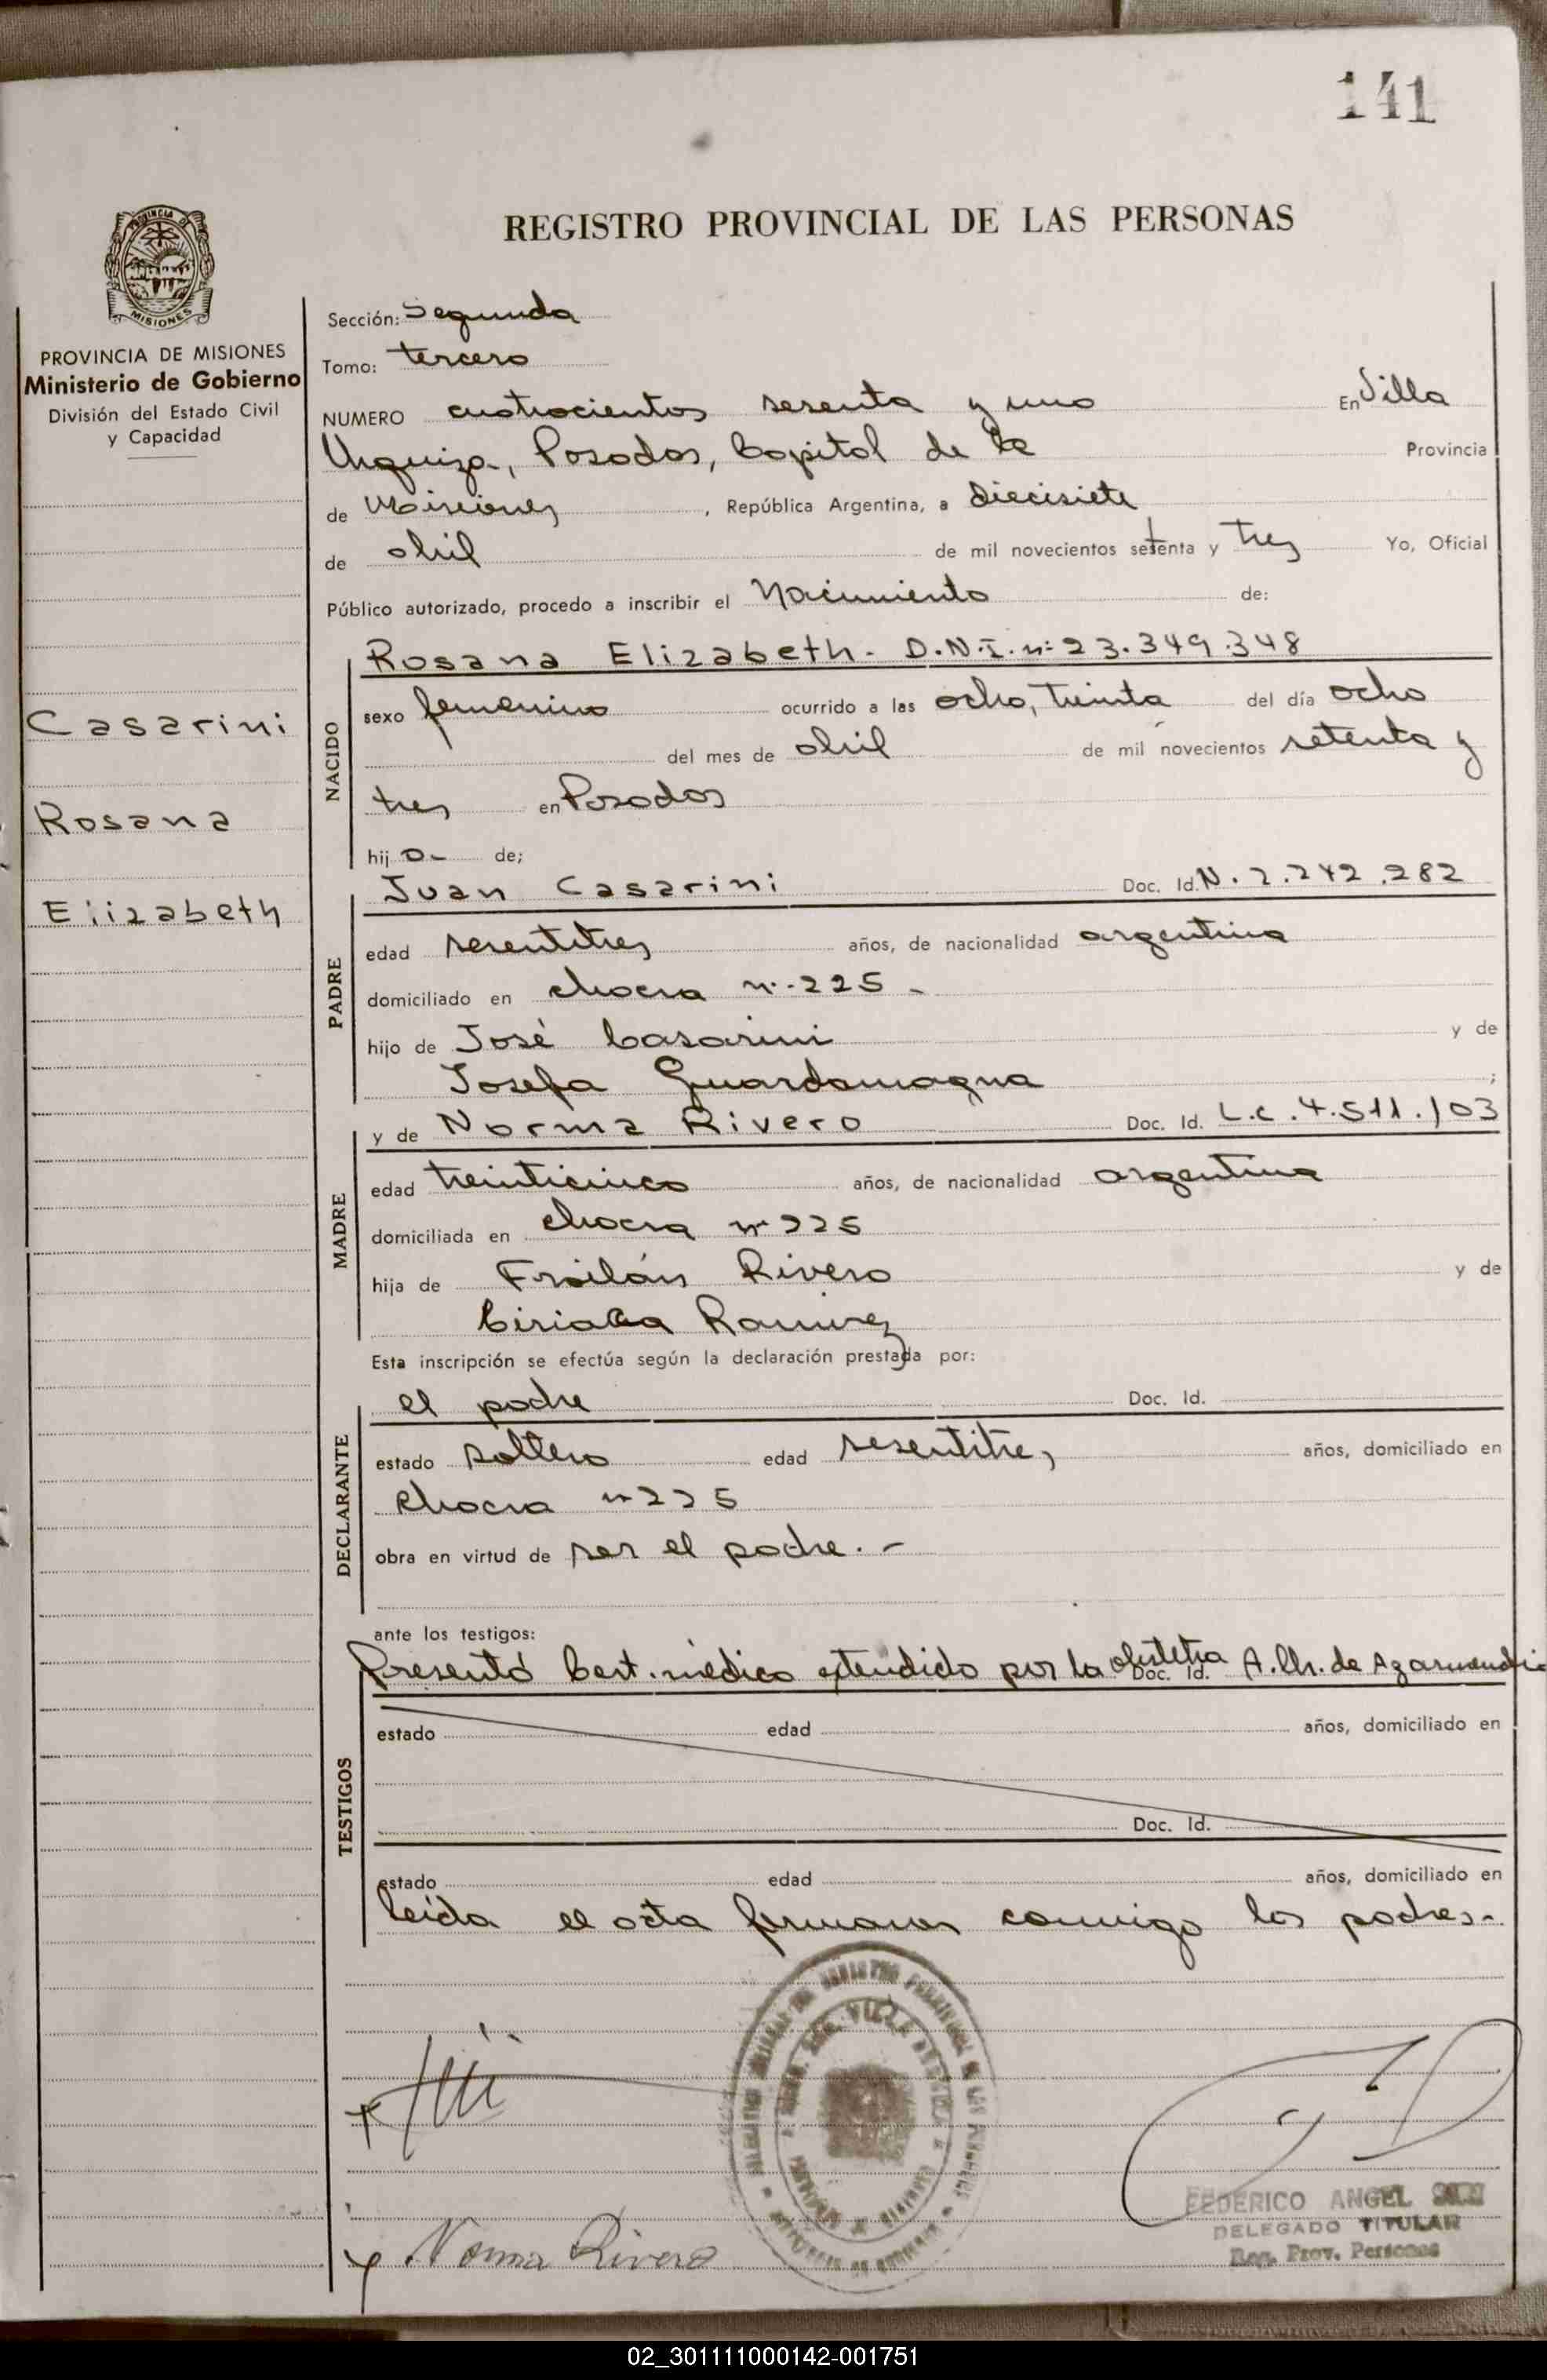 141
REGISTRO PROVINCIAL DE LAS PERSONAS
PROVINCIA DE
MISIONES
PROVINCIA DE MISIONES
Ministerio de Gobierno
División del Estado Civil
y Capacidad
Casarini
Rosana
Elizabeth
Sección: Segunda
Tomo: tercero
NUMERO cuatrocientos sesenta y uno En Villa
Urquiza, Posadas, Capital de la Provincia
de Misiones, República Argentina, a diecisiete
de abril de mil novecientos setenta y tres Yo, Oficial
Público autorizado, procedo a inscribir el Nacimiento de:
NACIDO
Rosana Elizabeth. D.N.I. nº 23.349.348
sexo femenino ocurrido a las ocho, treinta del día ocho
del mes de abril de mil novecientos setenta y
tres en Posadas
hij a- de;
PADRE
Juan Casarini Doc. Id. N. 2.242.282
edad sesentitres años, de nacionalidad argentina
domiciliado en chacra nº 225 -
hijo de José Casarini y de
Josefa Guardamagna ;
MADRE
y de Norma Rivero Doc. Id. L.C. 4.511.103
edad treinticinco años, de nacionalidad argentina
domiciliada en chacra nº 225
hija de Froilán Rivero y de
Ciriaca Ramirez
Esta inscripción se efectúa según la declaración prestada por:
DECLARANTE
el padre Doc. Id.
estado soltero edad sesentitres años, domiciliado en
chacra nº 225
obra en virtud de ser el padre. -
TESTIGOS
ante los testigos:
Presentó Cert. médico extendido por la obstetra Doc. Id. A. Ch. de Azarmendia
estado edad años, domiciliado en
Doc. Id.
estado edad años, domiciliado en
Leída el acta firmaron conmigo los padres.-
Norma Rivero
FEDERICO ANGEL
DELEGADO TITULAR
Reg. Prov. Personas
02_301111000142-001751